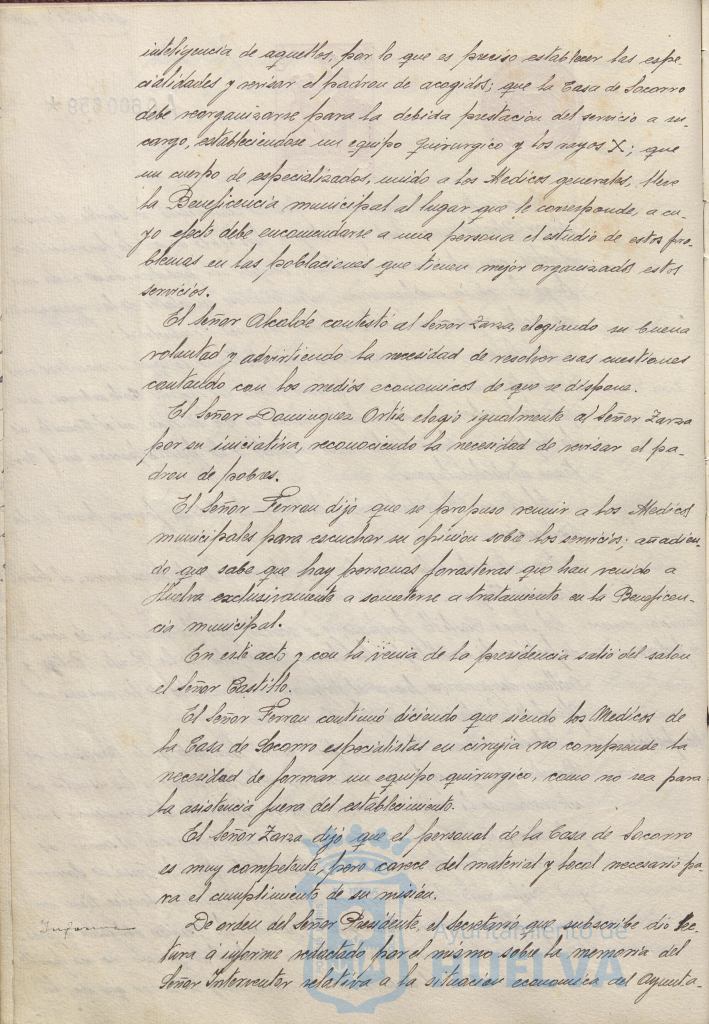 inteligencia de aquellos, por lo que es preciso establecer las espe-
cialidades y revisar el padron de acogidos; que la Casa de Socorro
debe reorganizarse para la debida prestacion del servicio a su
cargo, estableciendose un equipo quirurgico y los rayos X; que
un cuerpo de especializados, unido a los Medicos generales, lleve
la Beneficencia municipal al lugar que le corresponde, a cu-
yo efecto debe encomendarse a una persona el estudio de estos pro-
blemas en las poblaciones que tienen mejor organizados estos
servicios.
El Señor Alcalde contestó al Señor Zarza, elogiando su buena
voluntad y advirtiendo la necesidad de resolver esas cuestiones
contando con los medios economicos de que se dispone.
El Señor Dominguez Ortiz elogió igualmente al Señor Zarza
por su iniciativa, reconociendo la necesidad de revisar el pa-
dron de pobres.
El Señor Ferrau dijo que se propuso reunir a los Medicos
municipales para escuchar su opinion sobre los servicios; añadien-
do que sabe que hay personas forasteras que han venido a
Huelva exclusivamente a someterse a tratamiento en la Beneficen-
cia municipal.
En este acto y con la venia de la presidencia salió del salon
el Señor Castillo.
El Señor Ferrau continuó diciendo que siendo los Medicos de
la Casa de Socorro especialistas en cirujia no comprende la
necesidad de formar un equipo quirurgico, como no sea para
la asistencia fuera del establecimiento.
El Señor Zarza dijo que el personal de la Casa de Socorro
es muy competente, pero carece del material y local necesario pa-
ra el cumplimiento de su mision.
Informe
De orden del Señor Presidente, el Secretario que subscribe dió lec-
tura á informe redactado por el mismo sobre la memoria del
Señor Interventor relativa a la situacion economica del Ayunta-
Ayuntamiento de
HUELVA